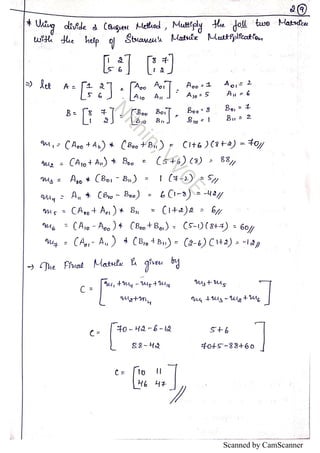 2(9)
* Using divide & Conquer Method, Multiply the foll two Matrices
with the help of Strassen's Matrix Multiplication.
[1 2 [8 7
5 6] 1 2]
=) let A = [1 2 5 6] = [A00 A01 A10 A11] A00 = 1 A01 = 2
A10 = 5 A11 = 6
B = [8 7 1 2] = [B00 B01 B10 B11] B00 = 8 B01 = 7
B10 = 1 B11 = 2
m1 = (A00 + A11) * (B00 + B11) = (1+6) (8+2) = 70//
m2 = (A10 + A11) * B00 = (5+6) (8) = 88//
m3 = A00 * (B01 - B11) = 1 (7-2) = 5//
m4 = A11 * (B10 - B00) = 6 (1-8) = -42//
m5 = (A00 + A01) * B11 = (1+2)2 = 6//
m6 = (A10 - A00) * (B00 + B01) = (5-1)(8+7) = 60//
m7 = (A01 - A11) * (B10 + B11) = (2-6) (1+2) = -12//
→ The Final Matrix is given by
C = [m1 + m4 - m5 + m7 m3 + m5
m2 + m4 m1 + m3 - m2 + m6]
C = [70 - 42 - 6 - 12 5 + 6
88 - 42 70+5-88+60]
C = [10 11
46 47] //
Scanned by CamScanner